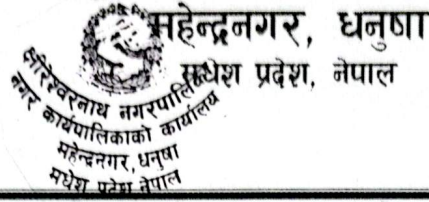 महेन्द्रनगर, धनुषा
मधेश प्रदेश, नेपाल
क्षीरेश्वरनाथ नगरपालिका
नगर कार्यपालिकाको कार्यालय
महेन्द्रनगर, धनुषा
मधेश प्रदेश नेपाल